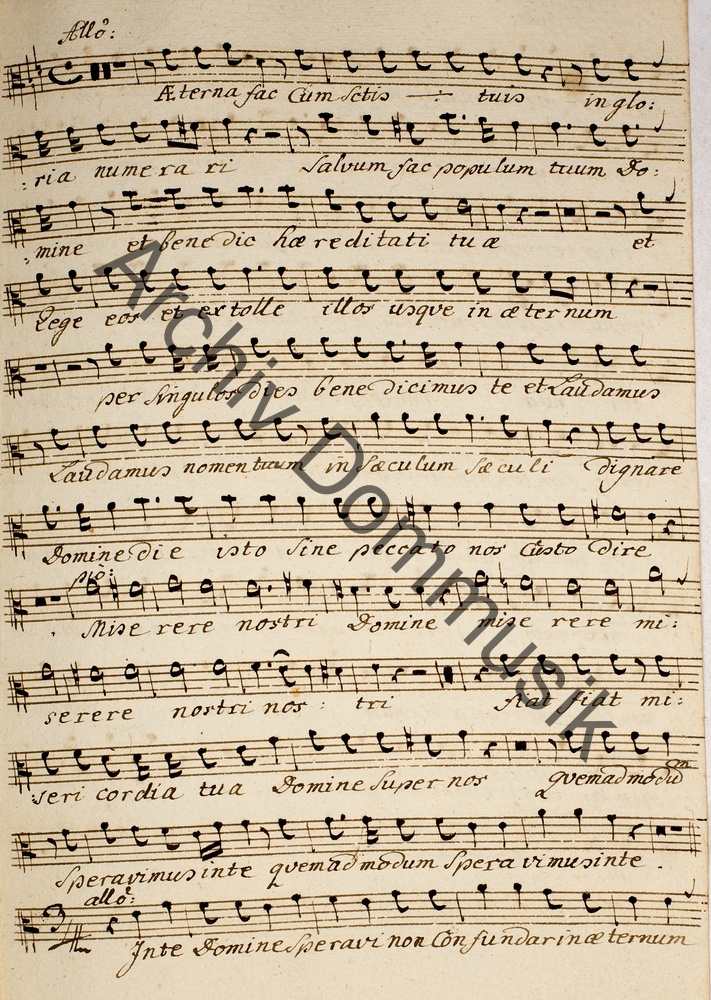 Allo:
Æterna fac Cum Sctis ÷ tuis in glo:
:ria numera ri Salvum fac populum tuum Do:
:mine et bene dic hæreditati tuæ et
Rege eos et extolle illos usque in æternum
per Singulos dies bene dicimus te et Laudamus
Laudamus nomen tuum in Sæculum Sæculi dignare
Domine die isto Sine peccato nos Custo dire
pio:
Mise rere nostri Domine mise rere mi:
serere nostri nos: tri fiat fiat mi:
:seri cordia tua Domine Super nos quemadmodum
Speravimus in te quemadmodum Spera vimus in te.
allo:
In te Domine Speravi non Con fundar in æternum
Archiv Dommusik